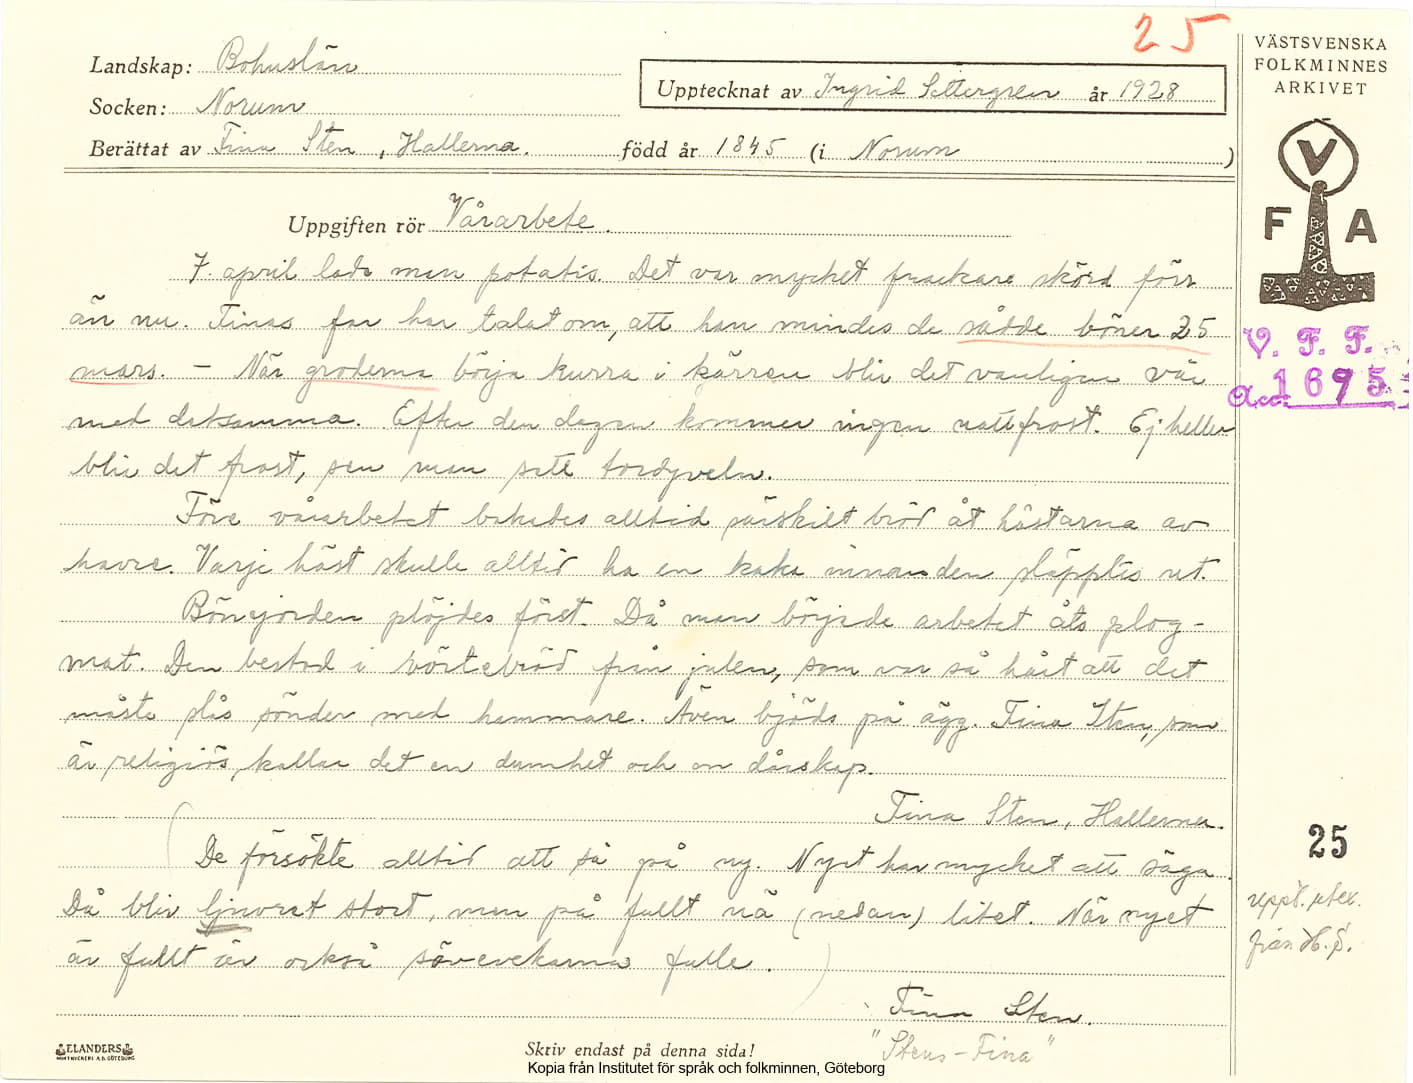 25
Landskap: Bohuslän
Socken: Norum
Upptecknat av Ingrid Settergren år 1928
Berättat av Fina Sten, Hallerna. född år 1845 (i Norum )
VÄSTSVENSKA
FOLKMINNES
ARKIVET
V
F A
Uppgiften rör Vårarbete.
7. april lade man potatis. Det var mycket frackare skörd förr
än nu. Finas far har talat om, att han mindes de sådde bönor 25
mars. – När groderna börja kurra i kärren blir det vanligen vår
med detsamma. Efter den dagen kommer ingen nattfrost. Ej heller
blir det frost, sen man sett tordyveln.
V. F. F.
Acc. 1695
Före vårarbetet bakades alltid särskilt bröd åt hästarna av
havre. Varje häst skulle alltid ha en kaka innan den släpptes ut.
Bönejorden plöjdes först. Då man började arbetet åts plog-
mat. Den bestod i vörtebröd från julen, som var så hårt att det
måste slås sönder med hammare. Även bjöds på ägg. Fina Sten, som
är religiös, kallar det en dumhet och en dårskap.
Fina Sten, Hallerna.
De försökte alltid att så på ny. Nyet har mycket att säga.
Då blir stort, men på fullt nä (nedan) litet. När nyet
är fullt är också fulle.
25
uppt. utex.
från H. S.
Fina Sten.
"Stens-Fina"
ELANDERS
BOKTRYCKERI A.B. GÖTEBORG
Skriv endast på denna sida!
Kopia från Institutet för språk och folkminnen, Göteborg